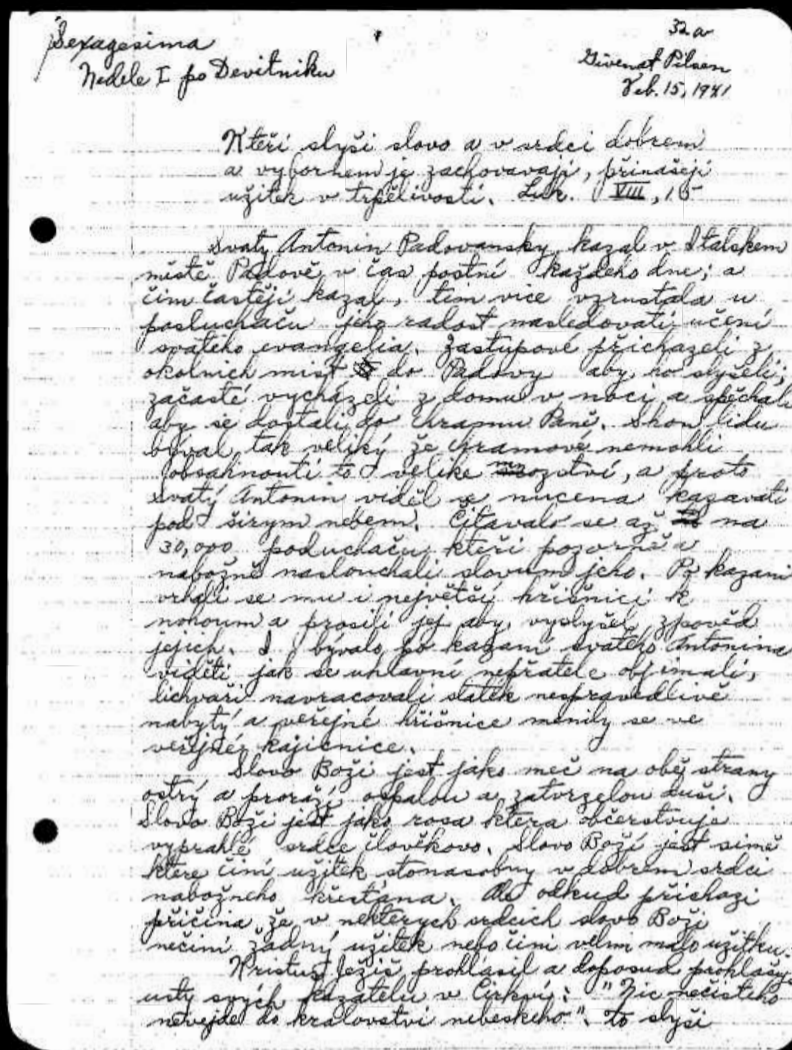 Sexagesima
Neděle I po Devitniku
32a
Givenat Pilsen
Feb. 15, 1941
Kteři slyši slovo a v srdci dobrem
a vybornem je zachovavaji, přinašeji
užitek v trpělivosti. Luk. VIII, 15
Svaty Antonin Padovansky kazal v Italskem
městě Padově v čas postni každeho dne; a
čim častěji kazal, tim vice vzrustala u
posluchaču jeho radost nasledovati učeni
svateho evangelia. Zastupove přichazeli z
okolnich mist do Padovy aby ho slyšeli;
začastě vychazeli z domu v noci a spěchali
aby se dostali do chramu Paně. Shon lidu
byval tak veliky že chramove nemohli
obsahnouti to velike množstvi, a proto
svaty Antonin viděl se nucena kazavati
pod širym nebem. Čitavalo se až na
30,000 poduchaču kteři pozorně a
nabožně naslouchali slovum jeho. Po kazani
vrhali se mu i největši hřišnici k
nohoum a prosili jej aby vyslyšel zpověd
jejich. I byvalo po kazani svateho Antonina
viděti jak se uhlavni nepřatele objimali,
lichvaři navracovali statek nespravedlivě
nabyty a veřejne hřišnice měnily se ve
veřejne kajicnice.
Slovo Boži jest jako meč na obě strany
ostry a proraži ospalou a zatvrzelou duši.
Slovo Boži jest jako rosa ktera občerstvuje
vyprahle srdce člověkovo. Slovo Boži jest simě
ktere čini užitek stonasobny v dobrem srdci
nabožneho křestana. Ale odkud přichazi
přičina že v nekterych srdcich slovo Boži
nečini žadni užitek nebo čini velmi malo užitku.
Kristus Ježiš prohlasil a doposud prohlašuje
usty svých kazatelu v Cirkvi: "Nic nečisteho
nevejde do kralovstvi nebeskeho". to slyši